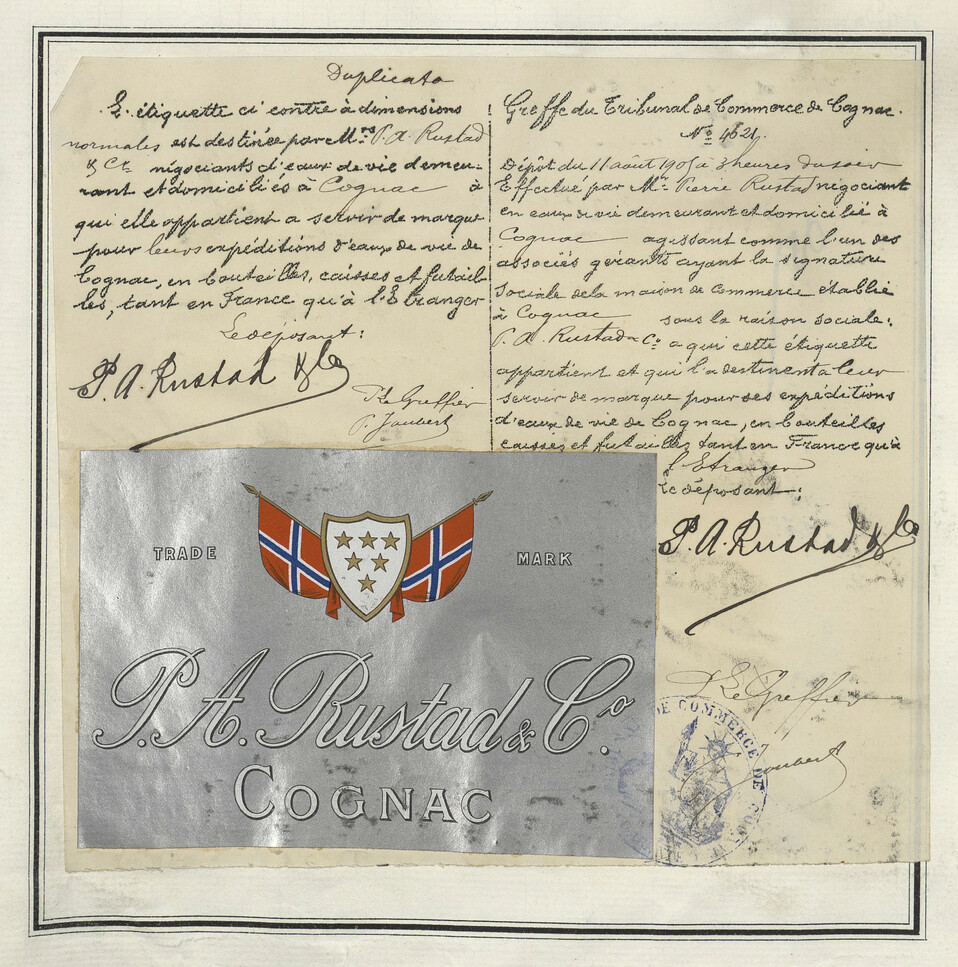 Duplicata
L'étiquette ci contre à dimensions
normales est destinée par M.rs P. A. Rustad
& Cie négociants d'eaux de vie demeu-
rant et domiciliés à Cognac à
qui elle appartient a servir de marque
pour leurs expéditions d'eaux de vie de
Cognac, en bouteilles, caisses et futail-
les, tant en France qu'à l'Etranger
Le déposant:
P. A. Rustad & Co
Le Greffier
P. Joubert
Greffe du Tribunal de Commerce de Cognac.
No 4621.
Dépôt du 11 août 1905 à 3 heures du soir
Effectué par Mr Pierre Rustad négociant
en eaux de vie demeurant et domicilié à
Cognac agissant comme l'un des
associés gérants ayant la signature
Sociale de la maison de Commerce établie
à Cognac sous la raison sociale:
P. A. Rustad & Co a qui cette étiquette
appartient et qui l'a destinent a leur
servir de marque pour ses expéditions
d'eaux de vie de Cognac, en bouteilles
caisses et futailles tant en France qu'à
l'Etranger
Le déposant:
P. A. Rustad & Co
Le Greffier
Joubert
DE COMMERCE DE
TRADE MARK
P. A. Rustad & Co.
COGNAC